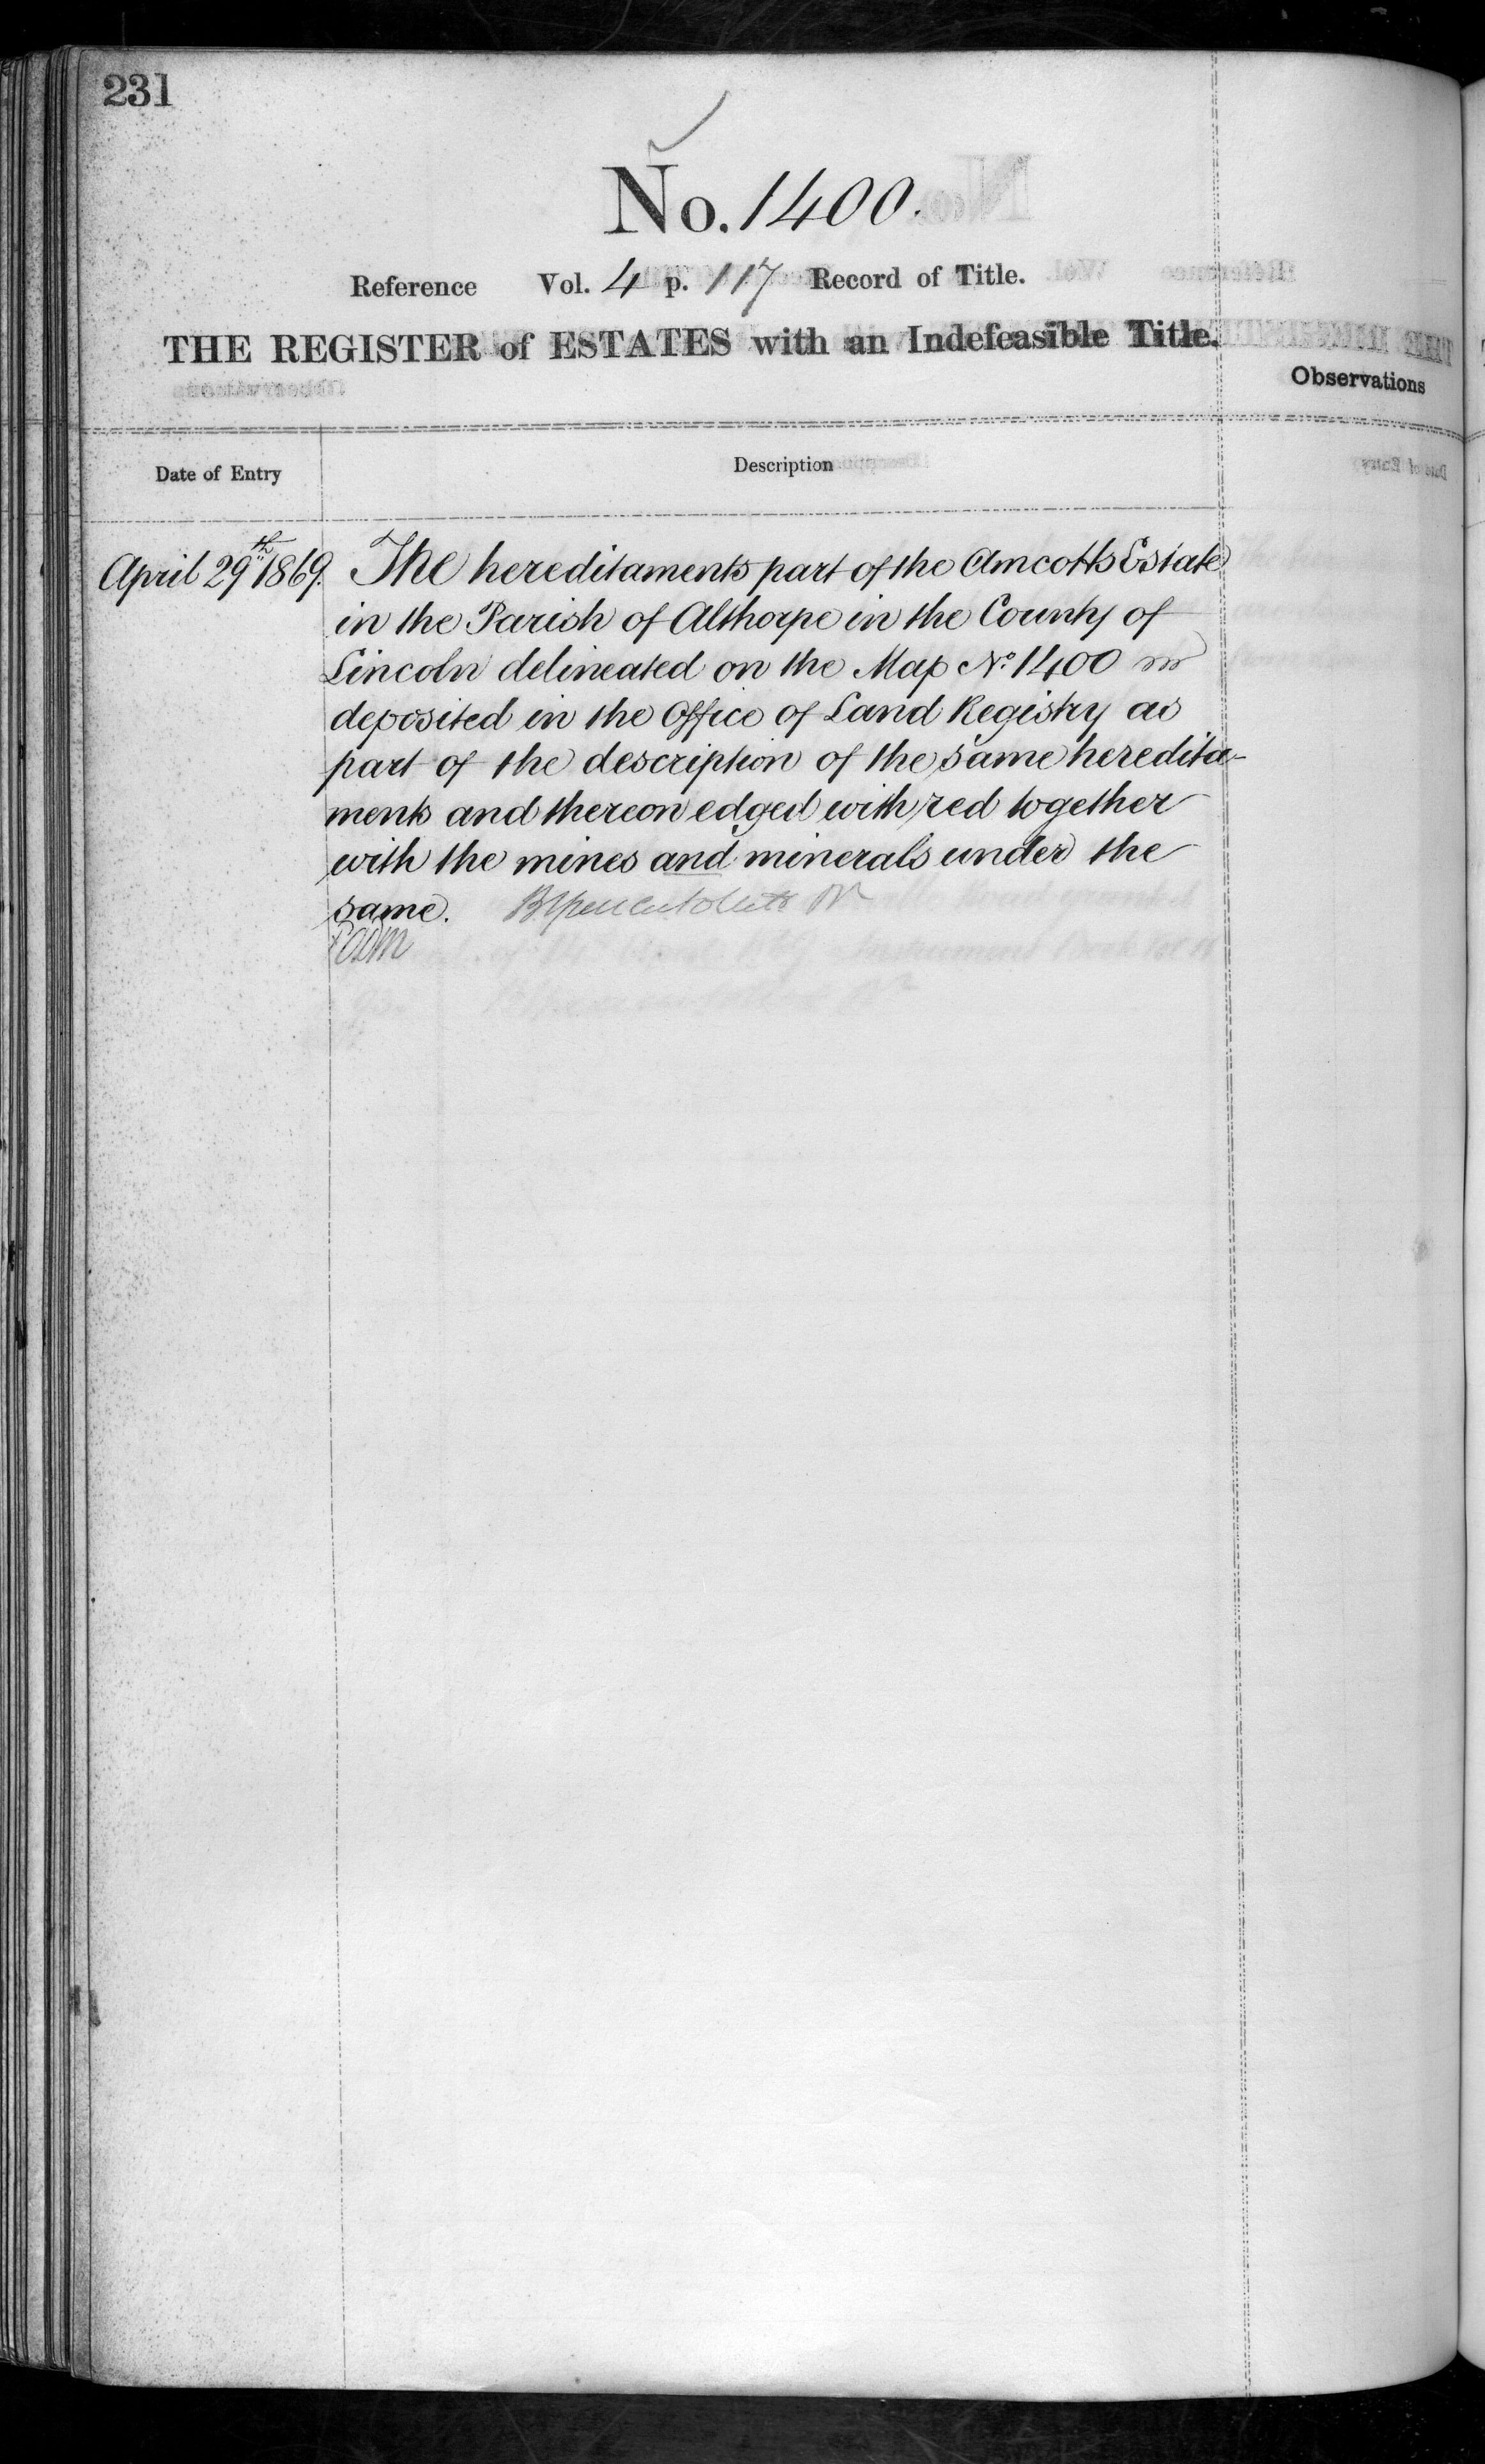 231
No. 1400.
Reference Vol. 4 p. 117 Record of Title.
THE REGISTER of ESTATES with an Indefeasible Title.
Observations
Date of Entry
Description
April 29th 1869. The hereditaments part of the Amcotts Estate
in the Parish of Althorpe in the County of
Lincoln delineated on the Map No. 1400
deposited in the Office of Land Registry as
part of the description of the same heredita-
ments and thereon edged with red together
with the mines and minerals under the
same.